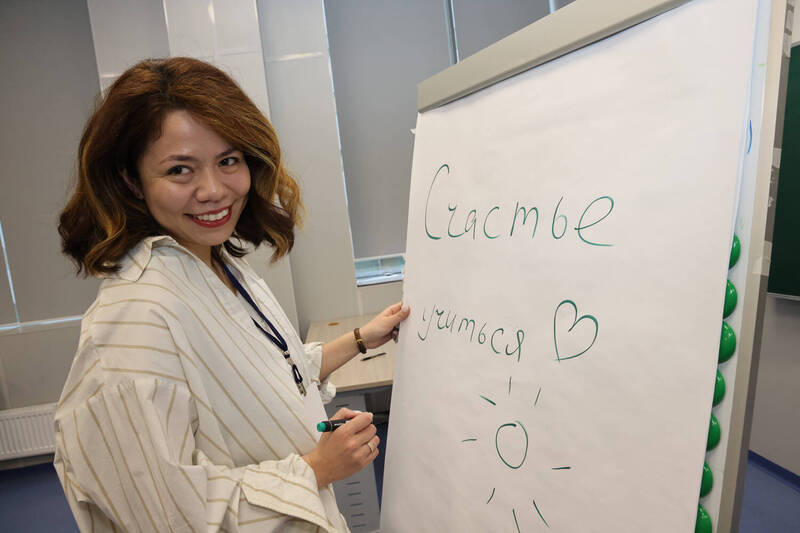 Счастье
учиться